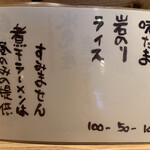 味たま
岩のり
ライス
100-50-1
すみません
煮干ラーメンは
夜のみの提供